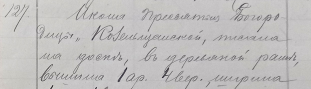 127. Икона Пресвятыя Богоро-
дицы „Козельщанской, писана
на доскѣ, въ деревяной рамѣ,
вышина 1 ар. 4 вер., ширина